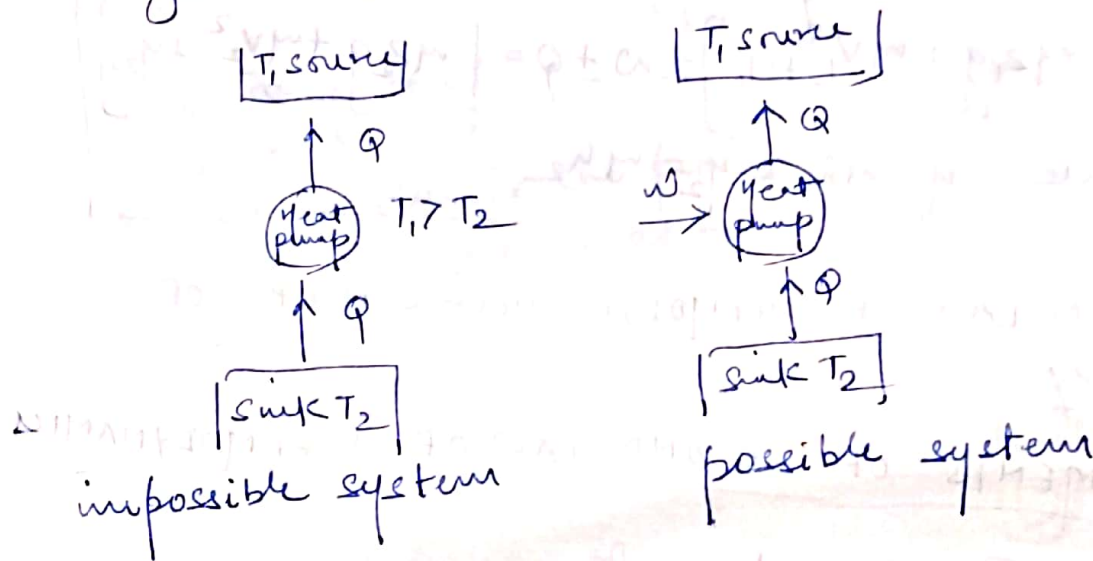 T₁ source
Q
Heat
pump
T₁ > T₂
Q
sink T₂
impossible system
T₁ source
Q
W
Heat
pump
Q
sink T₂
possible system